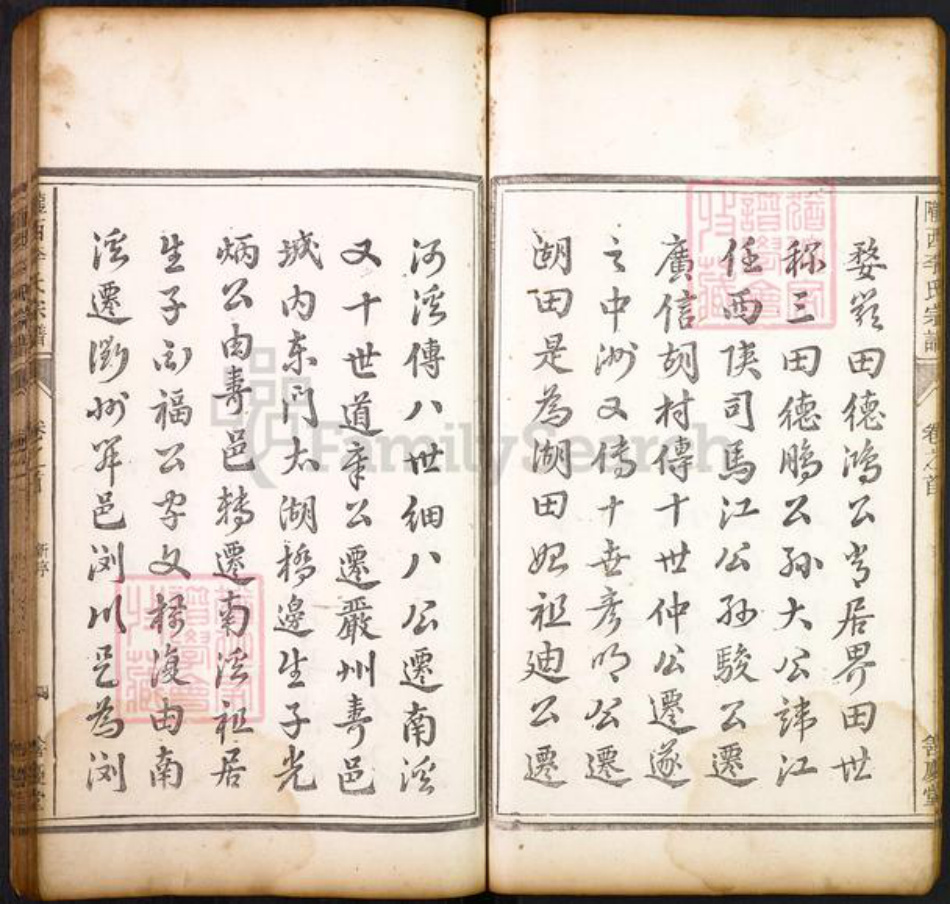 隴西李氏宗譜
卷之首
善慶堂
婺嚴田德鴻公肯居界田世
稱三田德鵬公孫大公諱江
任西陝司馬江公孫駿公遷
廣信胡村傳十世仲公遷遂
之中洲又傳十世彥明公遷
湖田是為湖田始祖廸公遷
河滨傳八世細八公遷南溪
又十世道章公遷嚴州壽邑
城内東门太湖橋邊生子光
炳公由壽邑轉遷南溪祖居
生子永福公字文 復由南
溪遷衢州 邑浏川是為浏
隴西李氏宗譜
卷之首
FamilySearch
猶家譜學會收藏
猶家譜學會收藏